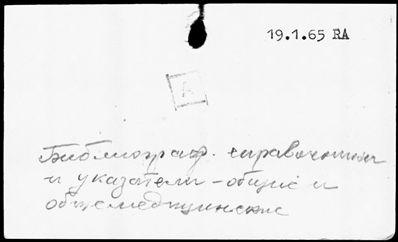 19.1.65 RA
A
Библиограф. справочники
и указатели - общие и
общемедицинские